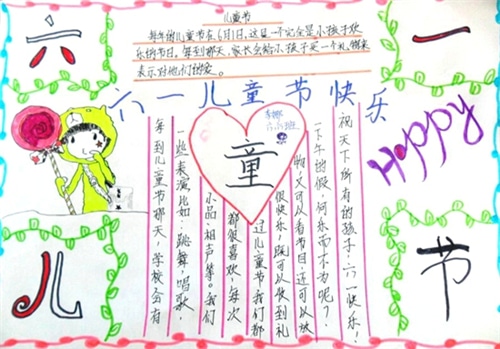 儿童节
每年的儿童节在6月1日,这是一个完全是小孩子欢
乐的节日。每到那天,家长会给小孩子买一个礼物来
表示对他们的爱。
六
一
六一儿童节快乐
Happy
童
每到儿童节那天,学校会有
一些表演比如:跳舞,唱歌,
小品、相声等。我们
都很喜欢。每次
过儿童节我们都
很快乐,既可以收到礼
物,又可以看节目,还可以放
一下午的假,何乐而不为呢?
祝天下所有的孩子:六一快乐!
儿
节